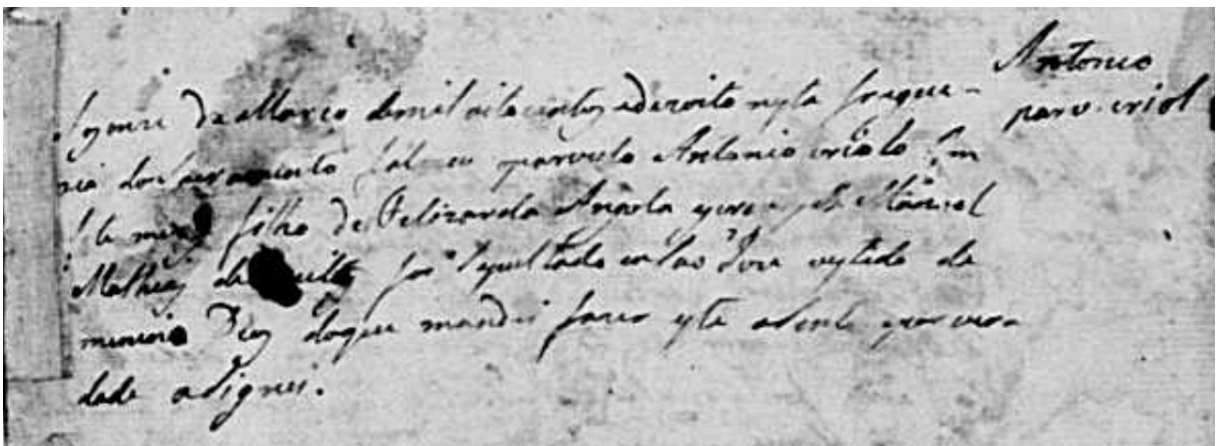 Antonio
parv. criol
de Março de mil oito centos e dezoito nesta fregue-
zia do Sacramento faleceu o parvulo Antonio criolo
filho de Felizarda Angola Manoel
Mathias de foi Sepultado em São vestido de
menino do que mandei fazer este asento por ver-
dade asignei.